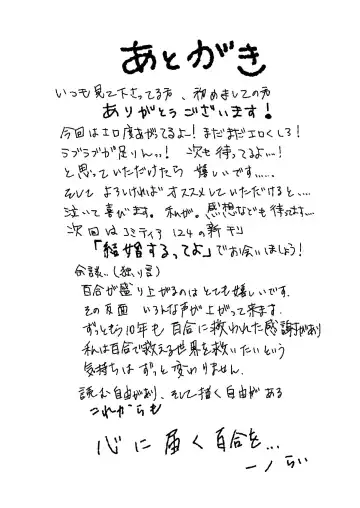 あとがき
いつも見て下さってる方、初めましての方
ありがとうございます！
今回はエロ度あがってるよー！まだまだエロくしろ！
ラブラブが足りんっ！次も待ってるよ…！
と思っていただけたら嬉しいです……
そして よろしければ オススメしていただけると…、
泣いて喜びます。私が。感想なども待ってます…
次回はコミティア124の新刊
「結婚するってよ」でお会いしましょう！
余談…（独り言）
百合が盛り上がるのはとても嬉しいです。
その反面 いろんな声が上がって来ます。
ずっともう10年も百合に救われた感謝があり
私は百合で救える世界を救いたいという
気持ちは ずっと変わりません。
読む自由があり、そして描く自由がある
これからも
心に届く百合を…
らい